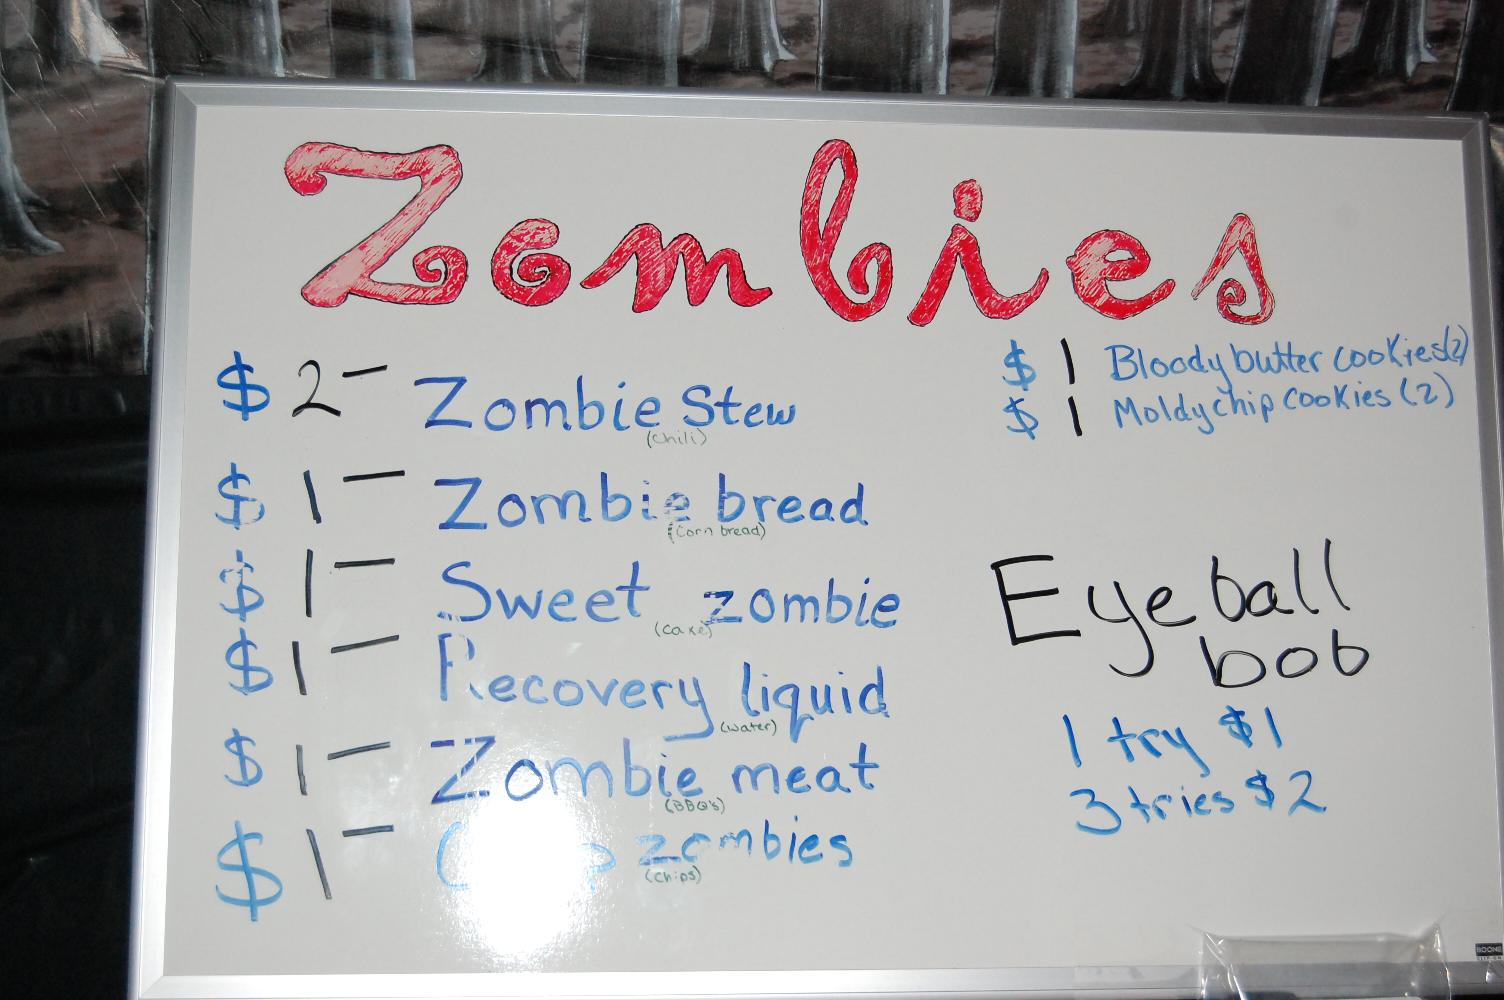 Zombies
$ 2 - Zombie Stew
(chili)
$ 1 - Zombie bread
(Corn bread)
$ 1 - Sweet zombie
(cake)
$ 1 - Recovery liquid
(water)
$ 1 - Zombie meat
(BBQ's)
$ 1 - zombies
(chips)
$ 1 Bloody butter cookies (2)
$ 1 Moldy chip cookies (2)
Eyeball
bob
1 try $1
3 tries $2
BOONE